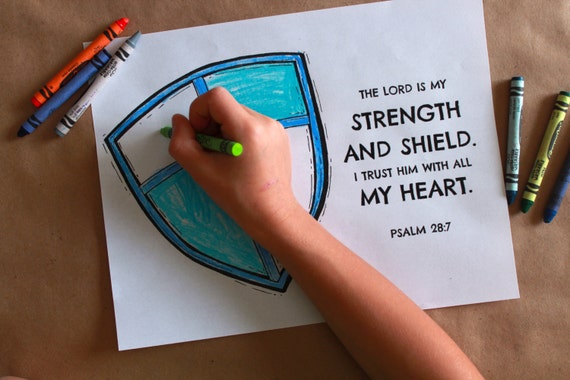 THE LORD IS MY
STRENGTH
AND SHIELD.
I TRUST HIM WITH ALL
MY HEART.
PSALM 28:7